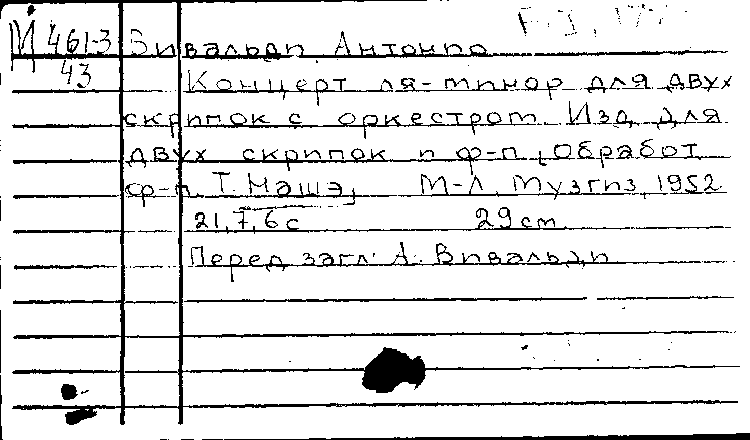 М 461-3 Вивальди, Антонио
43 Концерт ля-минор для двух
скрипок с оркестром. Изд. для
двух скрипок и ф-п, обработ.
ф-п. Т. Нашэ, М-Л, Музгиз, 1952.
21, 7, 6 с 29 cm
Перед загл: А. Вивальди